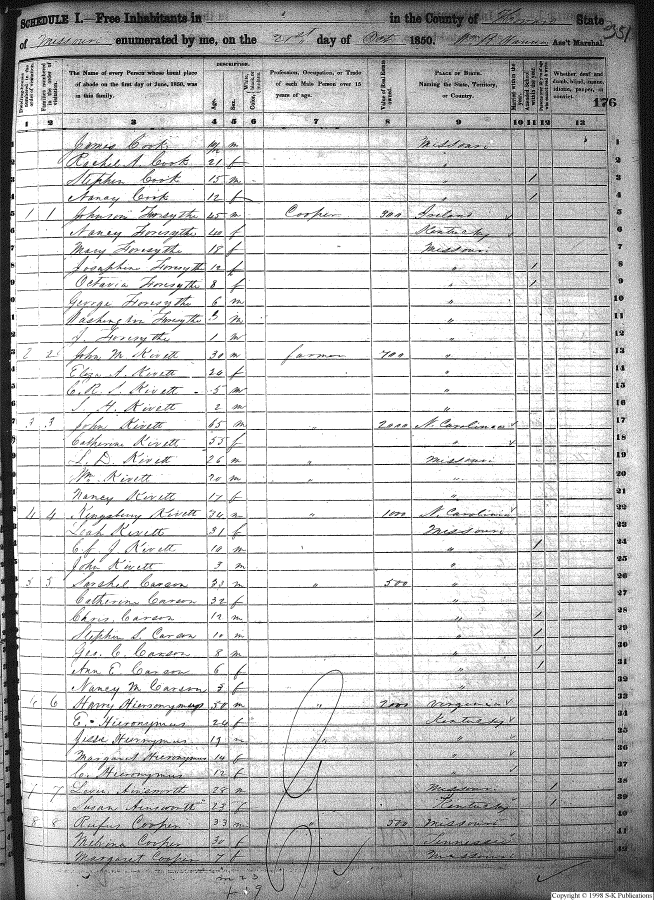 SCHEDULE I.—Free Inhabitants in in the County of State 351
of Missouri enumerated by me, on the 21st day of Oct 1850. Ass't Marshal.
176
DESCRIPTION.
The Name of every Person whose usual place of abode on the first day of June, 1850, was in this family.
Age.
Sex.
Profession, Occupation, or Trade of each Male Person over 15 years of age.
Value of Real Estate owned.
PLACE OF BIRTH. Naming the State, Territory, or Country.
Whether deaf and dumb, blind, insane, idiotic, pauper, or convict.
1 2 3 4 5 6 7 8 9 10 11 12 13
1 James Cook m Missouri 1
2 Rachel A. Cook 21 f " 2
3 Stephen Cook 15 m " 1 3
4 Nancy Cook 12 f " 1 4
5 1 1 Johnson Forsythe 45 m Cooper 300 Ireland 5
6 Nancy Forsythe 40 f Kentucky 6
7 Mary Forsythe 18 f Missouri 7
8 Josephine Forsythe 12 f " 1 8
9 Octavia Forsythe 8 f " 1 9
10 George Forsythe 6 m " 10
11 Washington Forsythe 3 m " 11
12 J. Forsythe 1 m " 12
13 2 2 John M. Kivett 30 m farmer 700 " 13
14 Eliza A. Kivett 24 f " 14
15 C. R. S. Kivett 5 m " 15
16 Kivett 2 m " 16
17 3 3 John Kivett 65 m " 2000 N. Carolina 17
18 Catherine Kivett 55 f " 18
19 L. D. Kivett 26 m " Missouri 19
20 Wm. Kivett 20 m " " 20
21 Nancy Kivett 17 f " 21
22 4 4 Kingsberry Kivett 34 m " 1000 N. Carolina 22
23 Leah Kivett 31 f Missouri 23
24 J. Kivett 10 m " 1 24
25 John Kivett 3 m " 25
26 5 5 Sarshel Carson 33 m " 500 " 26
27 Catherine Carson 32 f " 27
28 Chris. Carson 12 m " 1 28
29 Stephen S. Carson 10 m " 1 29
30 Geo. C. Carson 8 m " 1 30
31 Ann E Carson 6 f " 1 31
32 Nancy M. Carson 3 f " 32
33 6 6 Harry Hieronymus 50 m " 2000 Virginia 33
34 E. Hieronymus 24 f Kentucky 34
35 Jesse Hieronymus 19 m " " 35
36 Margaret Hieronymus 14 f " 36
37 C. Hieronymus 12 f " 37
38 7 7 Ainsworth 28 m " Missouri 1 38
39 Susan Ainsworth 23 f Kentucky 1 39
40 8 8 Rufus Cooper 33 m " 500 Missouri 40
41 Cooper 30 f Tennessee 41
42 Margaret Cooper 7 f Missouri 42
m 23
f 19
Copyright © 1998 S-K Publications